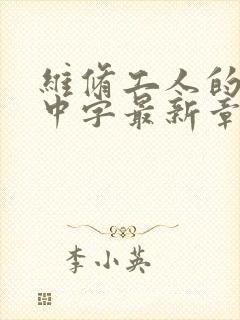 維脩工人的
中字最新章
李小英